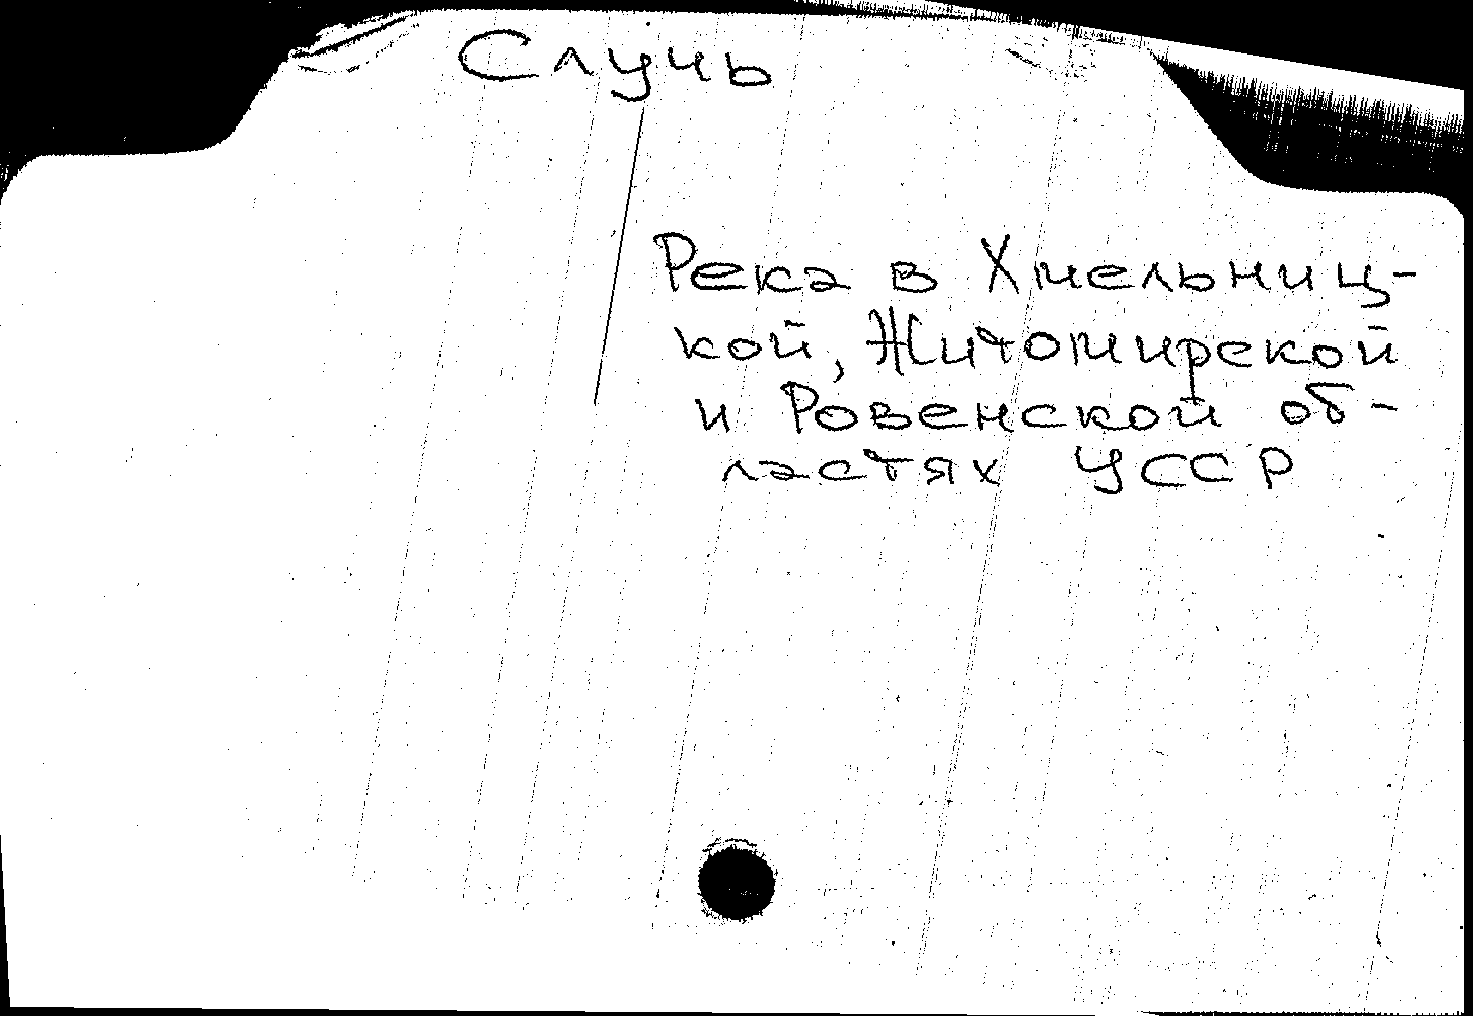 Случь
Река в Хмельниц-
кой, Житомирской
и Ровенской об-
ластях УССР